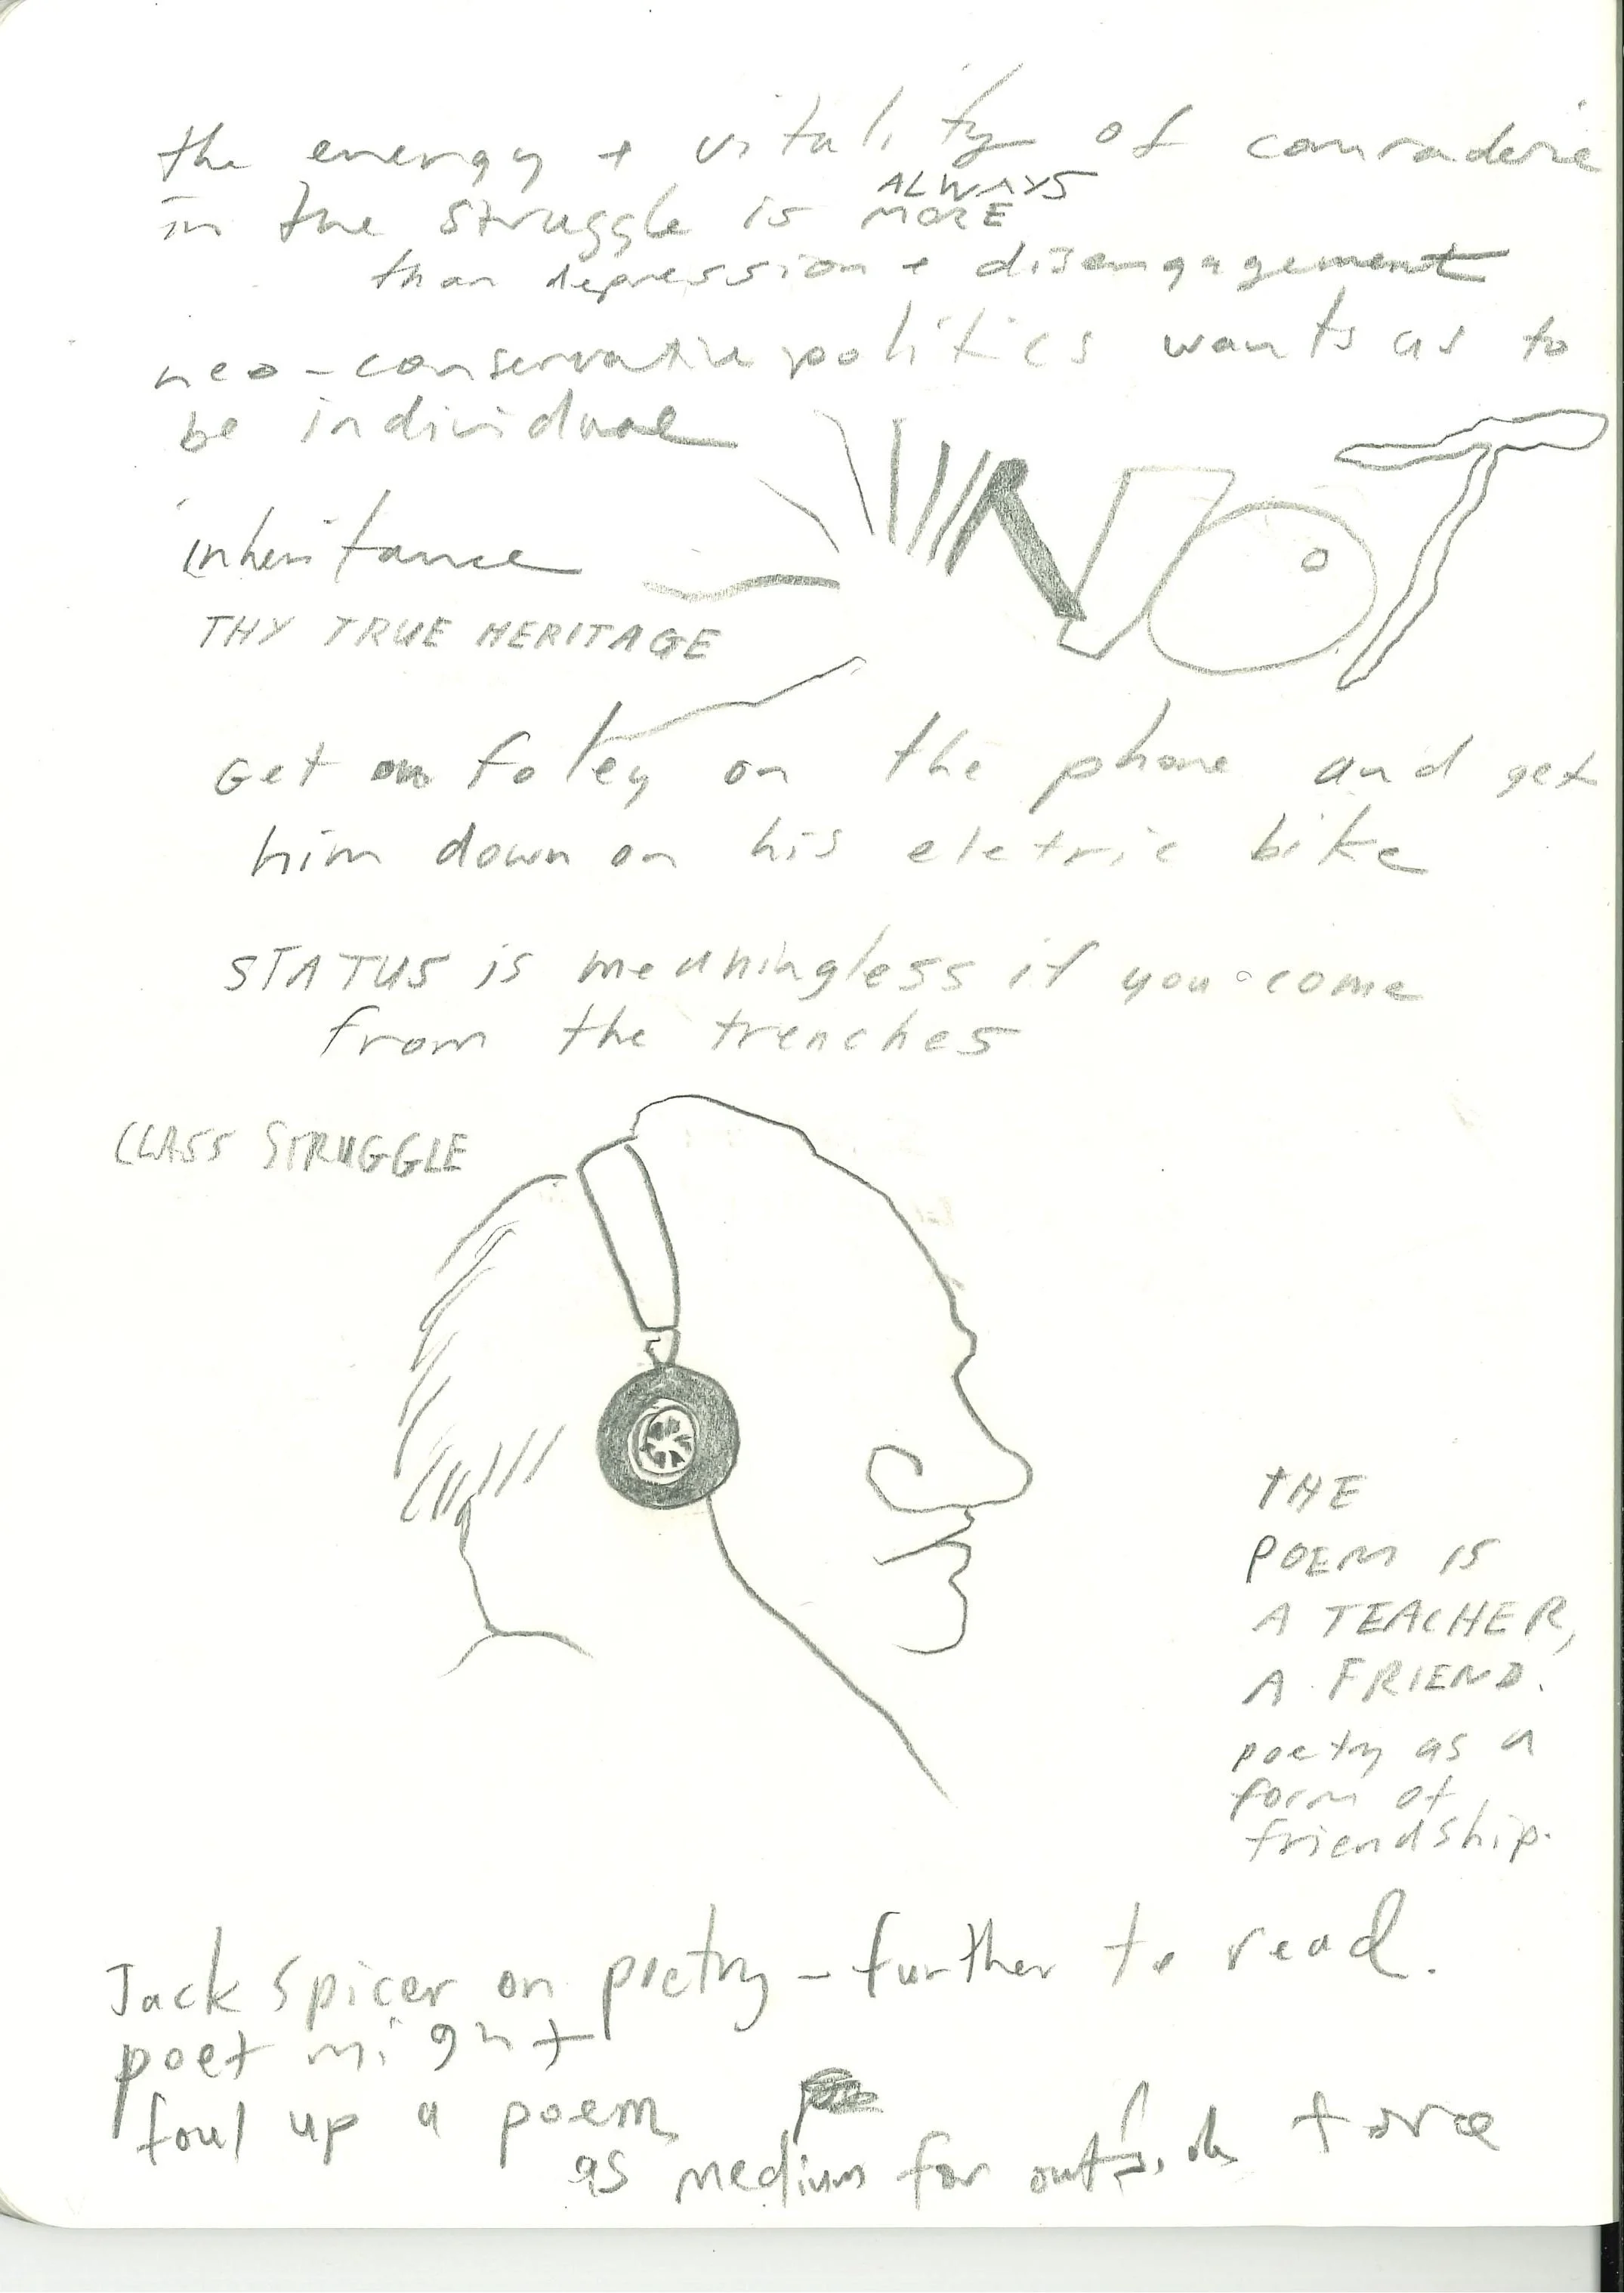 the energy + vitality of comraderie
ALWAYS
in the struggle is MORE
than depression + disengagement
neo-conservative politics wants us to
be individual
NOT
inheritance
THY TRUE HERITAGE
Get on Foley on the phone and get
him down on his eletric bike
STATUS is meaningless if you come
from the trenches
CLASS STRUGGLE
THE
POEM IS
A TEACHER,
A FRIEND.
poetry as a
form of
friendship.
Jack Spicer on poetry – further to read.
poet might
foul up a poem
as medium for outside force